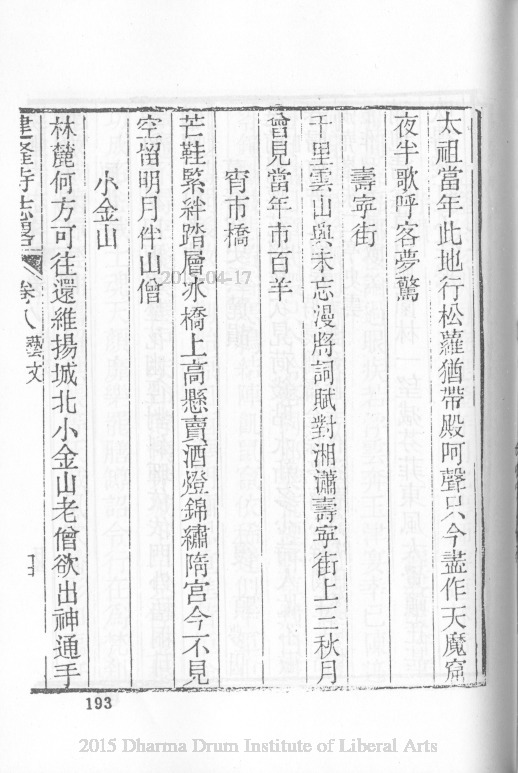 太祖當年此地行松蘿猶帶殿呵聲只今盡作天魔窟
夜半歌呼客夢驚
壽寧街
千里雲山興未忘漫將詞賦對湘瀟壽寧街上三秋月
曾見當年市百羊
宵市橋
芒鞋緊絆踏層冰橋上高懸賣酒燈錦繡隋宮今不見
空留明月伴山僧
小金山
林麓何方可往還維揚城北小金山老僧欲出神通手
建隆寺志畧 卷八藝文
193
2015-04-17
2015 Dharma Drum Institute of Liberal Arts